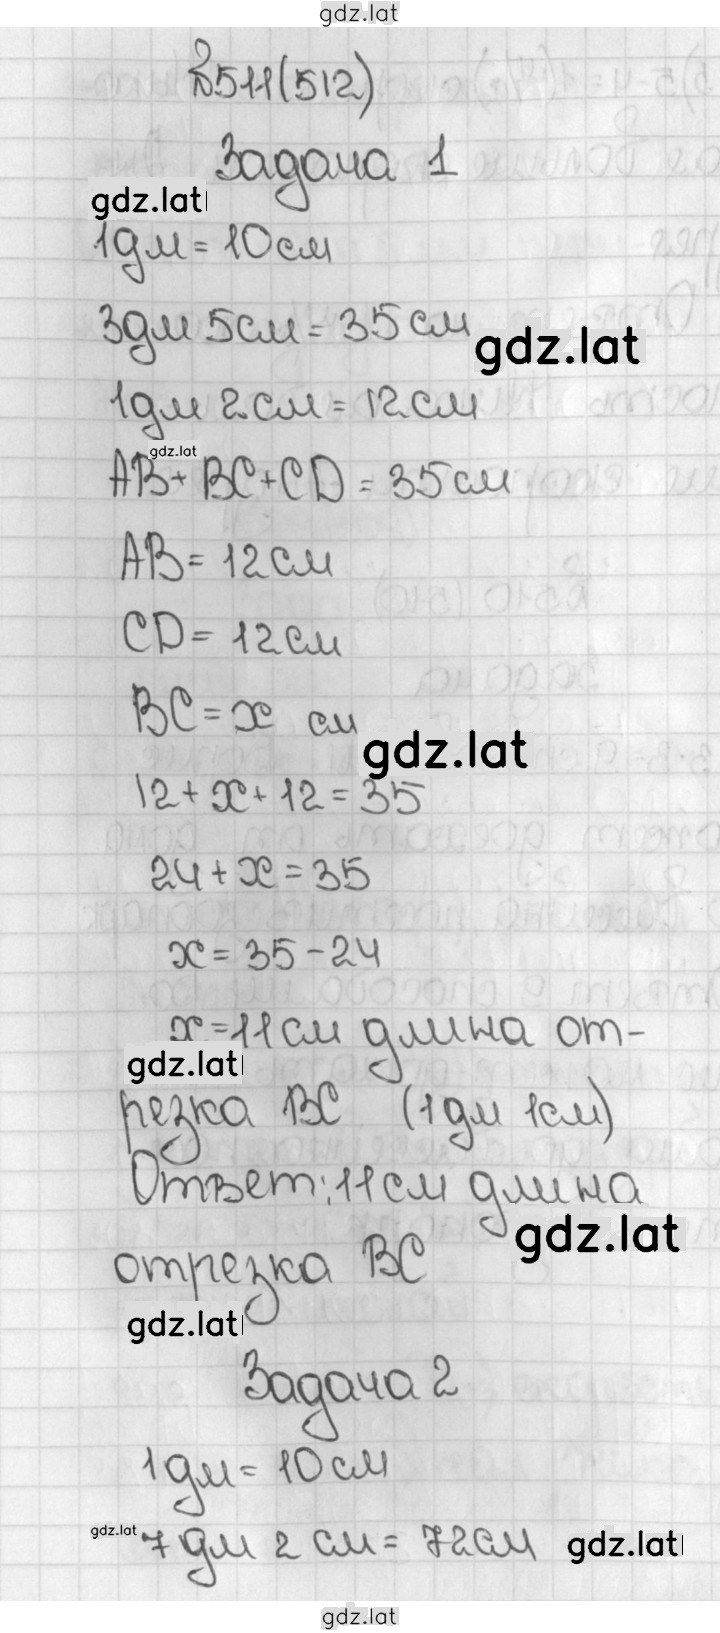 gdz.lat
№511(512)
Задача 1
gdz.lat
1дм = 10см
3дм 5см = 35см
gdz.lat
1дм 2см = 12см
gdz.lat
AB + BC + CD = 35см
AB = 12см
CD = 12см
BC = x см
gdz.lat
12 + x + 12 = 35
24 + x = 35
x = 35 - 24
x = 11см длина от-
gdz.lat
резка BC (1дм 1см)
Ответ: 11см длина
gdz.lat
отрезка BC
gdz.lat
Задача 2
1дм = 10см
gdz.lat
7 дм 2 см = 72см gdz.lat
gdz.lat